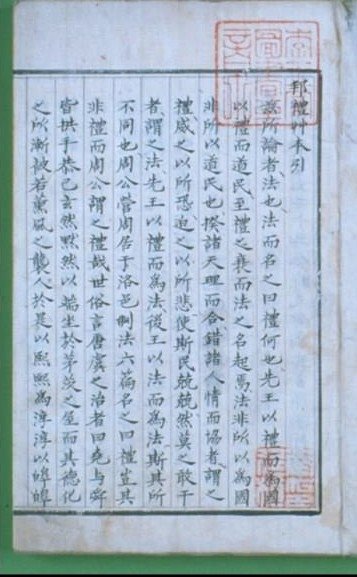 邦禮艸本引
玆所論者法也法而名之曰禮何也先王以禮而為國
以禮而道民至禮之衰而法之名起焉法非所以為國
非所以道民也揆諸天理而合錯諸人情而協者謂之
禮威之以所恐迫之以所悲使斯民兢兢然莫之敢干
者謂之法先王以禮而為法後王以法而為法斯其所
不同也周公營周居于洛邑制法六篇名之曰禮豈其
非禮而周公謂之禮哉世俗言唐虞之治者曰堯與舜
皆拱手恭己玄然默然以端坐於茅茨之屋而其德化
之所漸被若薰風之襲人於是以熙熙為淳淳以皥皥